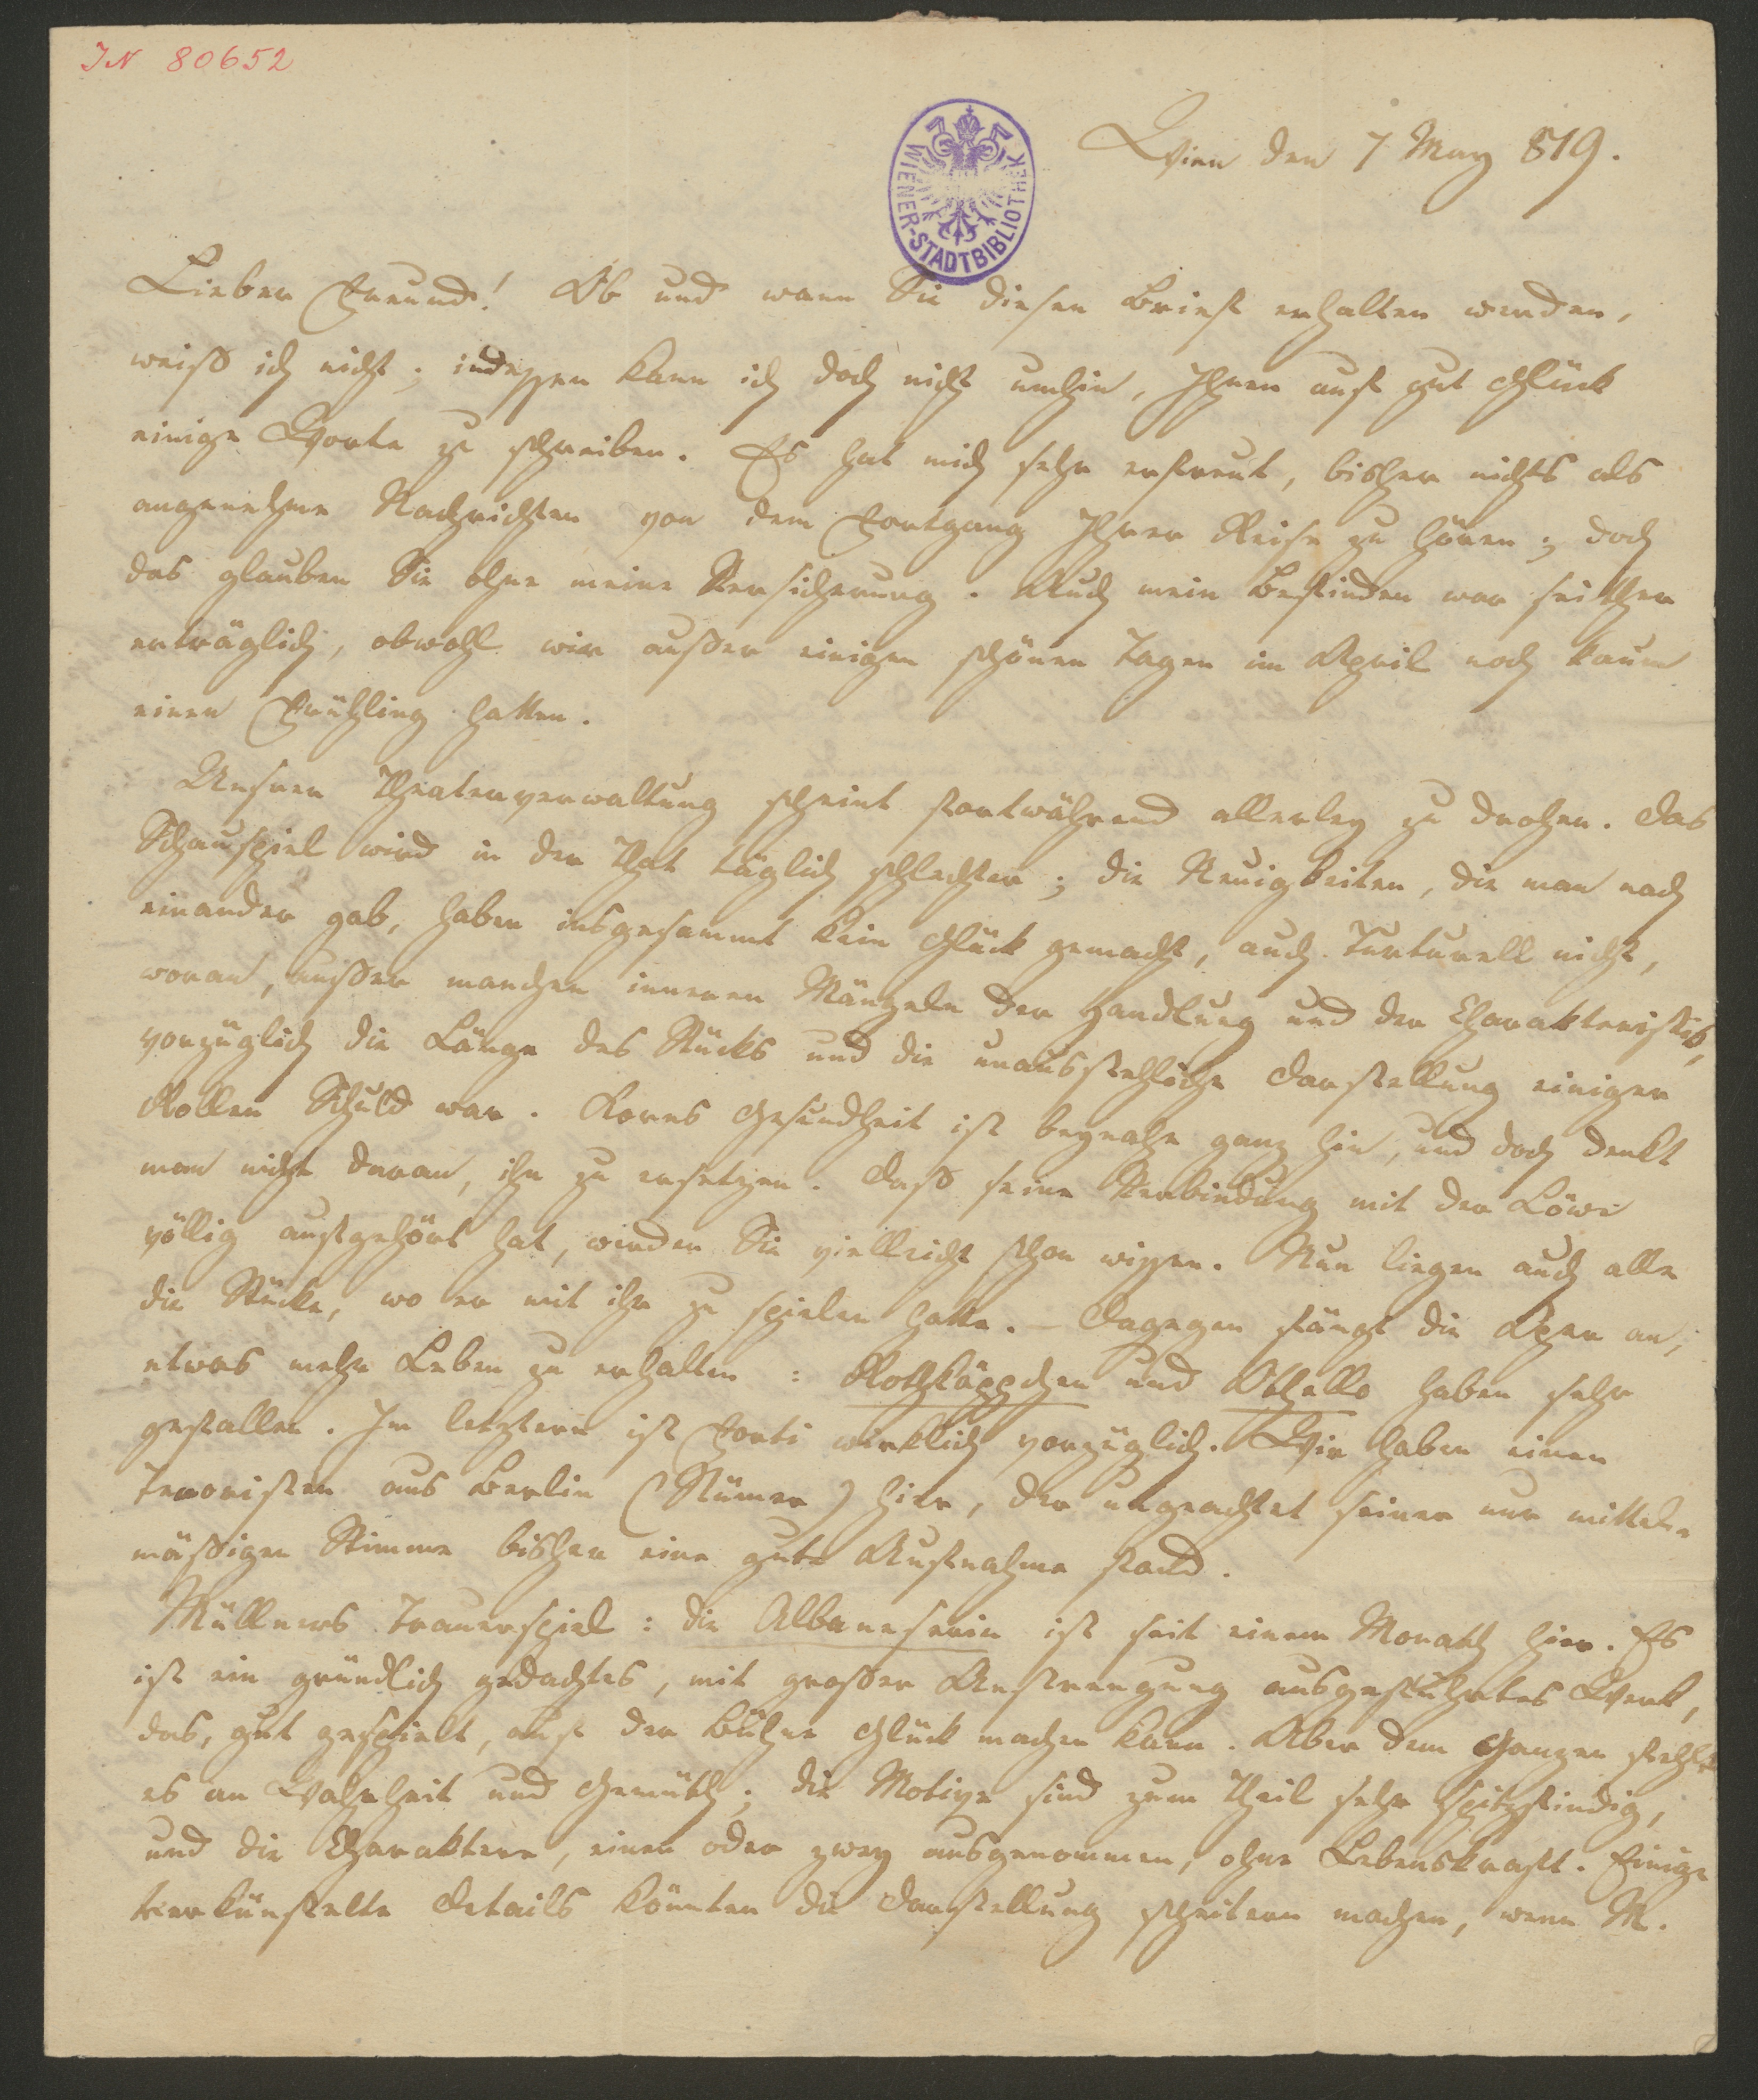 IN 80652
WIENER-STADTBIBLIOTHEK
Wien den 7 May 819.
Lieber Freund! Ob und wann Sie diesen Brief erhalten werden,
weiß ich nicht; indessen kann ich doch nicht umhin, Ihnen auf gut Glück
einige Worte zu schreiben. Es hat mich sehr erfreut, bisher nichts als
angenehme Nachrichten von dem Fortgang Ihrer Reise zu hören; doch
das glauben Sie ohne meine Versicherung. Auch mein Befinden war seither
erträglich, obwohl wir außer einigen schönen Tagen im April noch kaum
einen Frühling hatten.
Unsrer Theaterverwaltung scheint fortwährend allerley zu drohen. Das
Schauspiel wird in der That täglich schlechter; die Neuigkeiten, die man nach
einander gab, haben insgesammt kein Glück gemacht, auch Turturell nicht,
woran, außer manchen inneren Mängeln der Handlung und der Charakteristik,
vorzüglich die Länge des Stücks und die unausstehliche Darstellung einiger
Rollen Schuld war. Korns Gesundheit ist beynahe ganz hin, und doch denkt
man nicht daran, ihn zu ersetzen. Daß seine Verbindung mit der Löwe
völlig aufgehört hat, werden Sie vielleicht schon wissen. Nun liegen auch alle
die Stücke, wo er mit ihr zu spielen hatte. – Dagegen fängt die Oper an,
etwas mehr Leben zu erhalten: Rothkäppchen und Othello haben sehr
gefallen. Im letztern ist Forti wirklich vorzüglich. Wir haben einen
Tenoristen aus Berlin (Stümer) hier, der ungeachtet seiner nur mittel-
mäßigen Stimme bisher eine gute Aufnahme fand.
Müllners Trauerspiel: die Albaneserin ist seit einem Monath hier. Es
ist ein gründlich gedachtes, mit großer Anstrengung ausgeführtes Werk,
das, gut gespielt, auf der Bühne Glück machen kann. Aber dem Ganzen fehlt
es an Wahrheit und Gemüth; die Motive sind zum Theil sehr spitzfindig,
und die Charaktere, einen oder zwey ausgenommen, ohne Lebenskraft. Einige
verkünstelte Details könnten die Darstellung scheitern machen, wenn M.